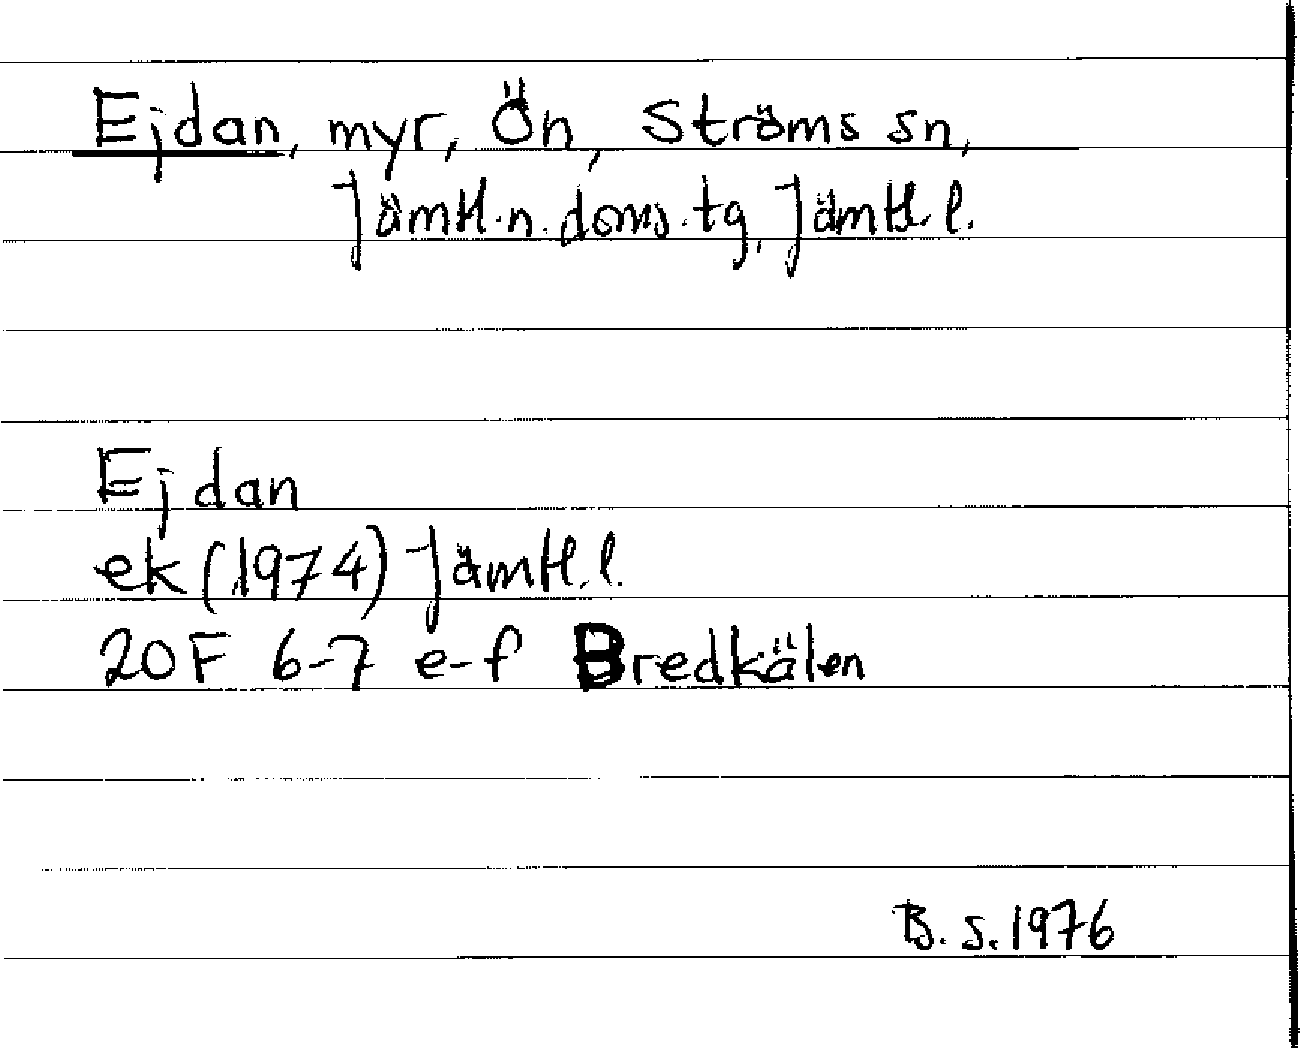 Ejdan, myr, Ön, Ströms sn,
Jämtl.n.doms.tg, Jämtl.l.
Ejdan
ek (1974) Jämtl.l.
20F 6-7 e-f Bredkälen
B.S.1976